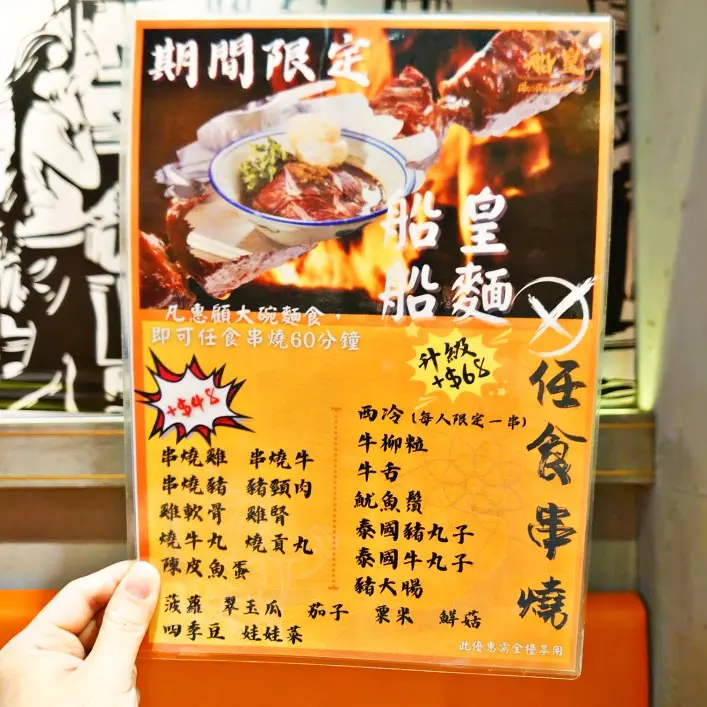 期間限定
船皇
船皇
船麵
凡惠顧大碗麵食，
即可任食串燒60分鐘
任食串燒
+$48
升級
+$68
串燒雞 串燒牛
串燒豬 豬頸肉
雞軟骨 雞腎
燒牛丸 燒貢丸
陳皮魚蛋
西冷(每人限定一串)
牛柳粒
牛舌
魷魚鬚
泰國豬丸子
泰國牛丸子
豬大腸
菠蘿 翠玉瓜 茄子 粟米 鮮菇
四季豆 娃娃菜
此優惠需全檯享用